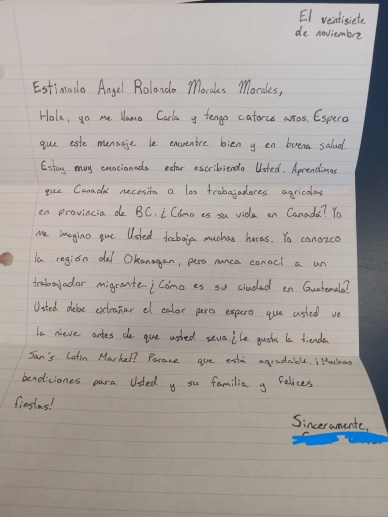 El veintisiete
de noviembre
Estimado Angel Rolando Morales Morales,
Hola, yo me llamo Carla y tengo catorce años. Espero
que este mensaje le encuentre bien y en buena salud.
Estoy muy emocionada estar escribiendo Usted. Aprendimos
que Canadá necesita a los trabajadores agricolas
en provincia de BC. ¿Cómo es su vida en Canadá? Yo
me imagino que Usted trabaja muchas horas. Yo conozco
la región del Okanagan, pero nunca conocí a un
trabajador migrante. ¿Cómo es su ciudad en Guatemala?
Usted debe extrañar el calor pero espero que usted ve
la nieve antes de que usted seva. ¿Le gusta la tienda
Latin Market? Parace que está agradable. ¡Muchas
bendiciones para Usted y su familia y felices
fiestas!
Sinceramente,